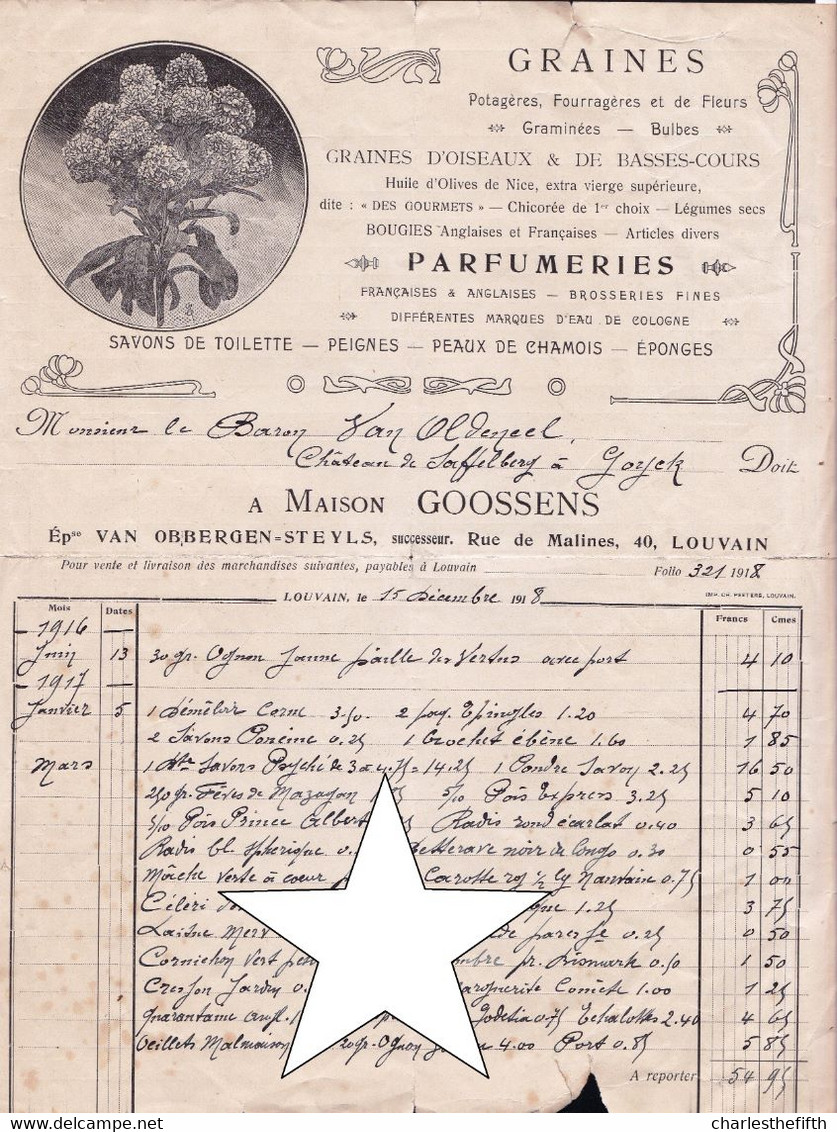 GRAINES
Potagères, Fourragères et de Fleurs
Graminées — Bulbes
GRAINES D'OISEAUX & DE BASSES-COURS
Huile d'Olives de Nice, extra vierge supérieure,
dite : « DES GOURMETS » — Chicorée de 1er choix — Légumes secs
BOUGIES Anglaises et Françaises — Articles divers
PARFUMERIES
FRANÇAISES & ANGLAISES — BROSSERIES FINES
DIFFÉRENTES MARQUES D'EAU DE COLOGNE
SAVONS DE TOILETTE — PEIGNES — PEAUX DE CHAMOIS — ÉPONGES
Monsieur le Baron Van Oldeneel,
Château de Saffelberg à Goyck Doit
A MAISON GOOSSENS
Épse VAN OBBERGEN=STEYLS, successeur. Rue de Malines, 40, LOUVAIN
Pour vente et livraison des marchandises suivantes, payables à Louvain Folio 321 1918
LOUVAIN, le 15 Décembre 1918 IMP. CH. PEETERS, LOUVAIN.
Mois Dates Francs Cmes
1916
Juin 13 30 gr. Ognon Jaune paille des Vertus avec port 4 10
1917
Janvier 5 1 Démêloir Corne 3.50. 2 paq. Epingles 1.20 4 70
2 Savons 0.25 1 Crochet ébène 1.60 1 85
Mars 1 Savons Psyché de 3 a 4.75 = 14.25 1 Poudre Savon 2.25 16 50
250 gr. Fèves de Mazagan 5/10 Pois Express 3.25 5 10
5/10 Pois Prince Albert Radis rond écarlat 0.40 3 65
Radis bl. spherique 0. Betterave noir de 0.30 0 55
Mâche verte à coeur Carotte 1/2 Nantaise 0.75 1 00
Céleri 1.25 3 75
Laitue Merv de 0.25 0 50
Cornichon Vert pr. Bismark 0.50 1 50
Cresson Jardin 0. Marguerite Comète 1.00 1 25
Quarantaine Godetia 0.75 Echalottes 2.40 4 65
Oeillets Malmaison 20 gr. Ognon 4.00 Port 0.85 5 85
A reporter 54 95
charlesthefifth